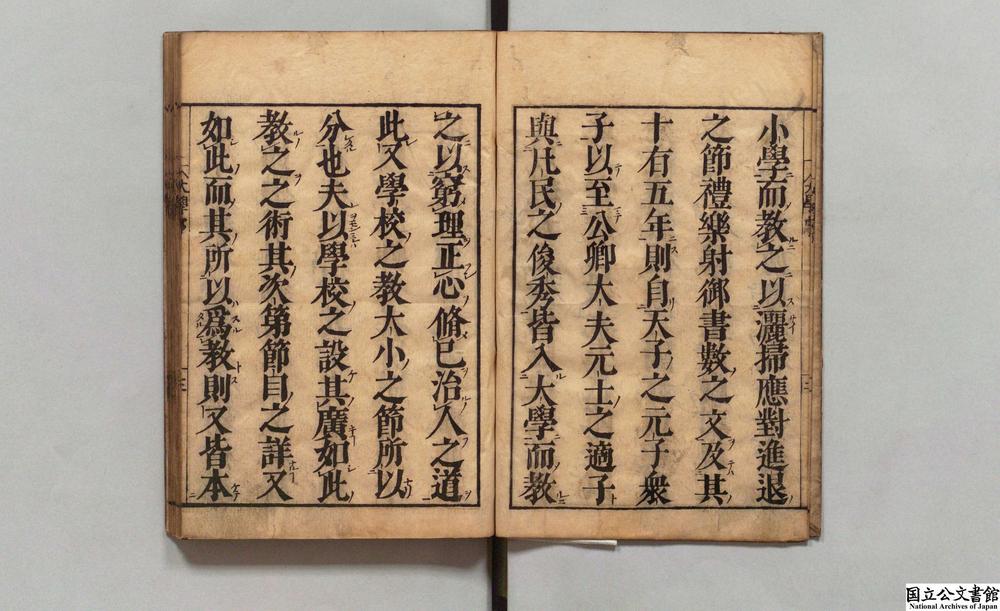 小學而教之以灑掃應對進退
之節禮樂射御書數之文及其
十有五年則自天子之元子衆
子以至公卿大夫元士之適子
與凡民之俊秀皆入大學而教
之以窮理正心脩己治人之道
此又學校之教大小之節所以
分也夫以學校之設其廣如此
教之之術其次第節目之詳又
如此而其所以爲教則又皆本
国立公文書館
National Archives of Japan